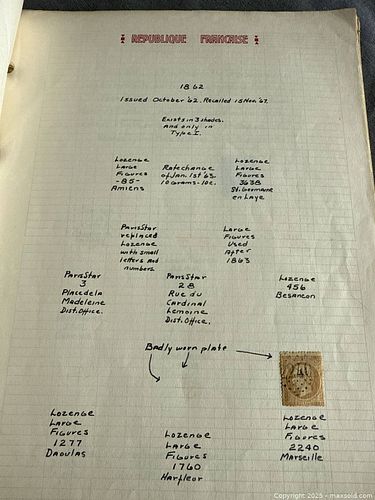 REPUBLIQUE FRANCAISE
1862
Issued October '62. Recalled 15 Nov. '67.
Exists in 3 shades.
And only in
Type I.
Lozenge
Large
Figures
-85-
Amiens
Rate change
of Jan. 1st '63
10 grams - 10c.
Lozenge
Large
Figures
3638
St. Germaine
en Laye
Paris Star
replaced
Lozenge
with small
letters and
numbers
Large
Figures
Used
After
1863
Paris Star
3
Place de la
Madeleine
Dist. Office.
Paris Star
28
Rue du
Cardinal
Lemoine
Dist. Office.
Lozenge
456
Besancon
Badly worn plate
Lozenge
Large
Figures
1277
Daoulas
Lozenge
Large
Figures
1760
Harfleur
Lozenge
Large
Figures
2240
Marseille
Copyright 2025 - maxsold.com